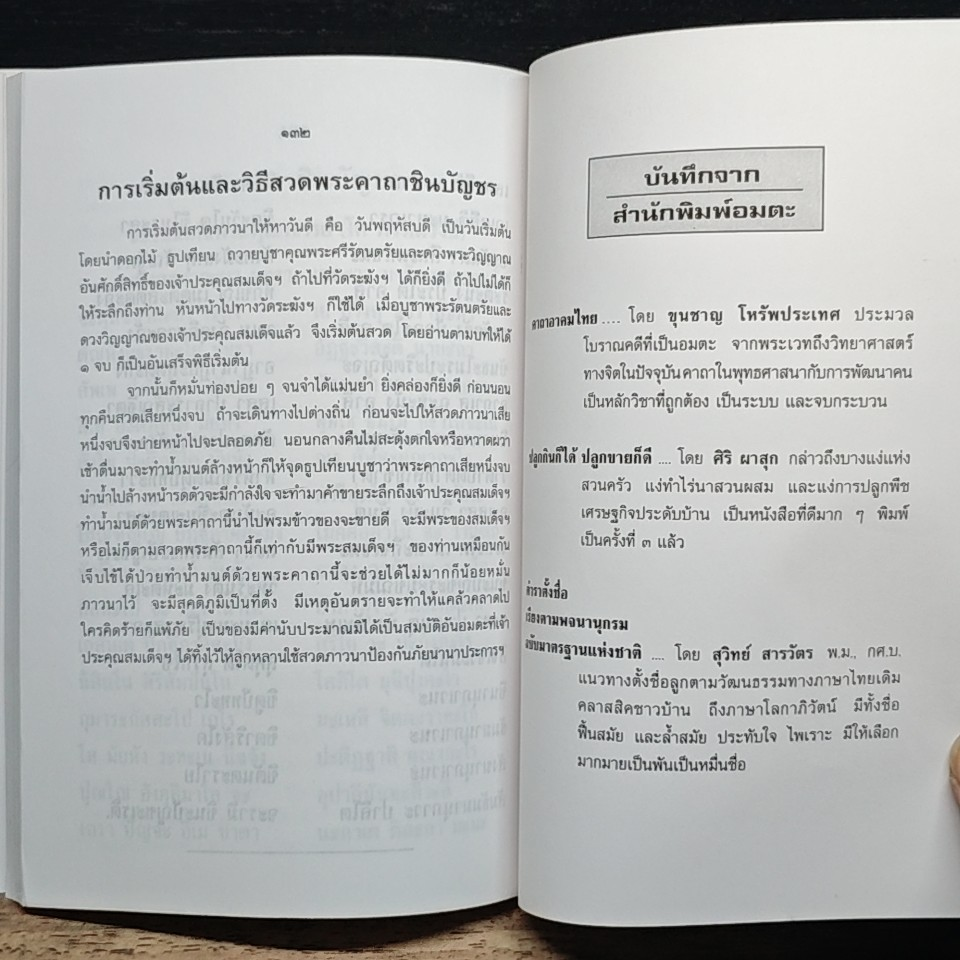 ๑๓๒
การเริ่มต้นและวิธีสวดพระคาถาชินบัญชร
การเริ่มต้นสวดภาวนาให้หาวันดี คือ วันพฤหัสบดี เป็นวันเริ่มต้น
โดยนำดอกไม้ ธูปเทียน ถวายบูชาคุณพระศรีรัตนตรัยและดวงพระวิญญาณ
อันศักดิ์สิทธิ์ของเจ้าประคุณสมเด็จฯ ถ้าไปที่วัดระฆังฯ ได้ก็ยิ่งดี ถ้าไปไม่ได้ก็
ให้ระลึกถึงท่าน หันหน้าไปทางวัดระฆังฯ ก็ใช้ได้ เมื่อบูชาพระรัตนตรัยและ
ดวงวิญญาณของเจ้าประคุณสมเด็จแล้ว จึงเริ่มต้นสวด โดยอ่านตามบทให้ได้
๑ จบ ก็เป็นอันเสร็จพิธีเริ่มต้น
จากนั้นก็หมั่นท่องบ่อย ๆ จนจำได้แม่นยำ ยิ่งคล่องก็ยิ่งดี ก่อนนอน
ทุกคืนสวดเสียหนึ่งจบ ถ้าจะเดินทางไปต่างถิ่น ก่อนจะไปให้สวดภาวนาเสีย
หนึ่งจบจึงบ่ายหน้าไปจะปลอดภัย นอนกลางคืนไม่สะดุ้งตกใจหรือหวาดผวา
เช้าตื่นมาจะทำน้ำมนต์ล้างหน้าก็ให้จุดธูปเทียนบูชาว่าพระคาถาเสียหนึ่งจบ
นำน้ำไปล้างหน้ารดตัวจะมีกำลังใจ จะทำมาค้าขายระลึกถึงเจ้าประคุณสมเด็จฯ
ทำน้ำมนต์ด้วยพระคาถานี้นำไปพรมข้าวของจะขายดี จะมีพระของสมเด็จฯ
หรือไม่ก็ตามสวดพระคาถานี้ก็เท่ากับมีพระสมเด็จฯ ของท่านเหมือนกัน
เจ็บไข้ได้ป่วยทำน้ำมนต์ด้วยพระคาถานี้จะช่วยได้ไม่มากก็น้อยหมั่น
ภาวนาไว้ จะมีสุคติภูมิเป็นที่ตั้ง มีเหตุอันตรายจะทำให้แคล้วคลาดไป
ใครคิดร้ายก็แพ้ภัย เป็นของมีค่านับประมาณมิได้เป็นสมบัติอันอมตะที่เจ้า
ประคุณสมเด็จฯ ได้ทิ้งไว้ให้ลูกหลานใช้สวดภาวนาป้องกันภัยนานาประการฯ
บันทึกจาก
สำนักพิมพ์อมตะ
คาถาอาคมไทย .... โดย ขุนชาญ โหรัพประเทศ ประมวล
โบราณคดีที่เป็นอมตะ จากพระเวทถึงวิทยาศาสตร์
ทางจิตในปัจจุบัน คาถาในพุทธศาสนากับการพัฒนาคน
เป็นหลักวิชาที่ถูกต้อง เป็นระบบ และจบกระบวน
ปลูกกินก็ได้ ปลูกขายก็ดี .... โดย ศิริ ผาสุก กล่าวถึงบางแง่แห่ง
สวนครัว แง่ทำไร่นาสวนผสม และแง่การปลูกพืช
เศรษฐกิจประดับบ้าน เป็นหนังสือที่ดีมาก ๆ พิมพ์
เป็นครั้งที่ ๓ แล้ว
ตำราตั้งชื่อ
เรียงตามพจนานุกรม
ฉบับมาตรฐานแห่งชาติ .... โดย สุวิทย์ สารวัตร พ.ม., กศ.บ.
แนวทางตั้งชื่อลูกตามวัฒนธรรมทางภาษาไทยเดิม
คลาสสิคชาวบ้าน ถึงภาษาโลกาภิวัตน์ มีทั้งชื่อ
ฟื้นสมัย และล้ำสมัย ประทับใจ ไพเราะ มีให้เลือก
มากมายเป็นพันเป็นหมื่นชื่อ